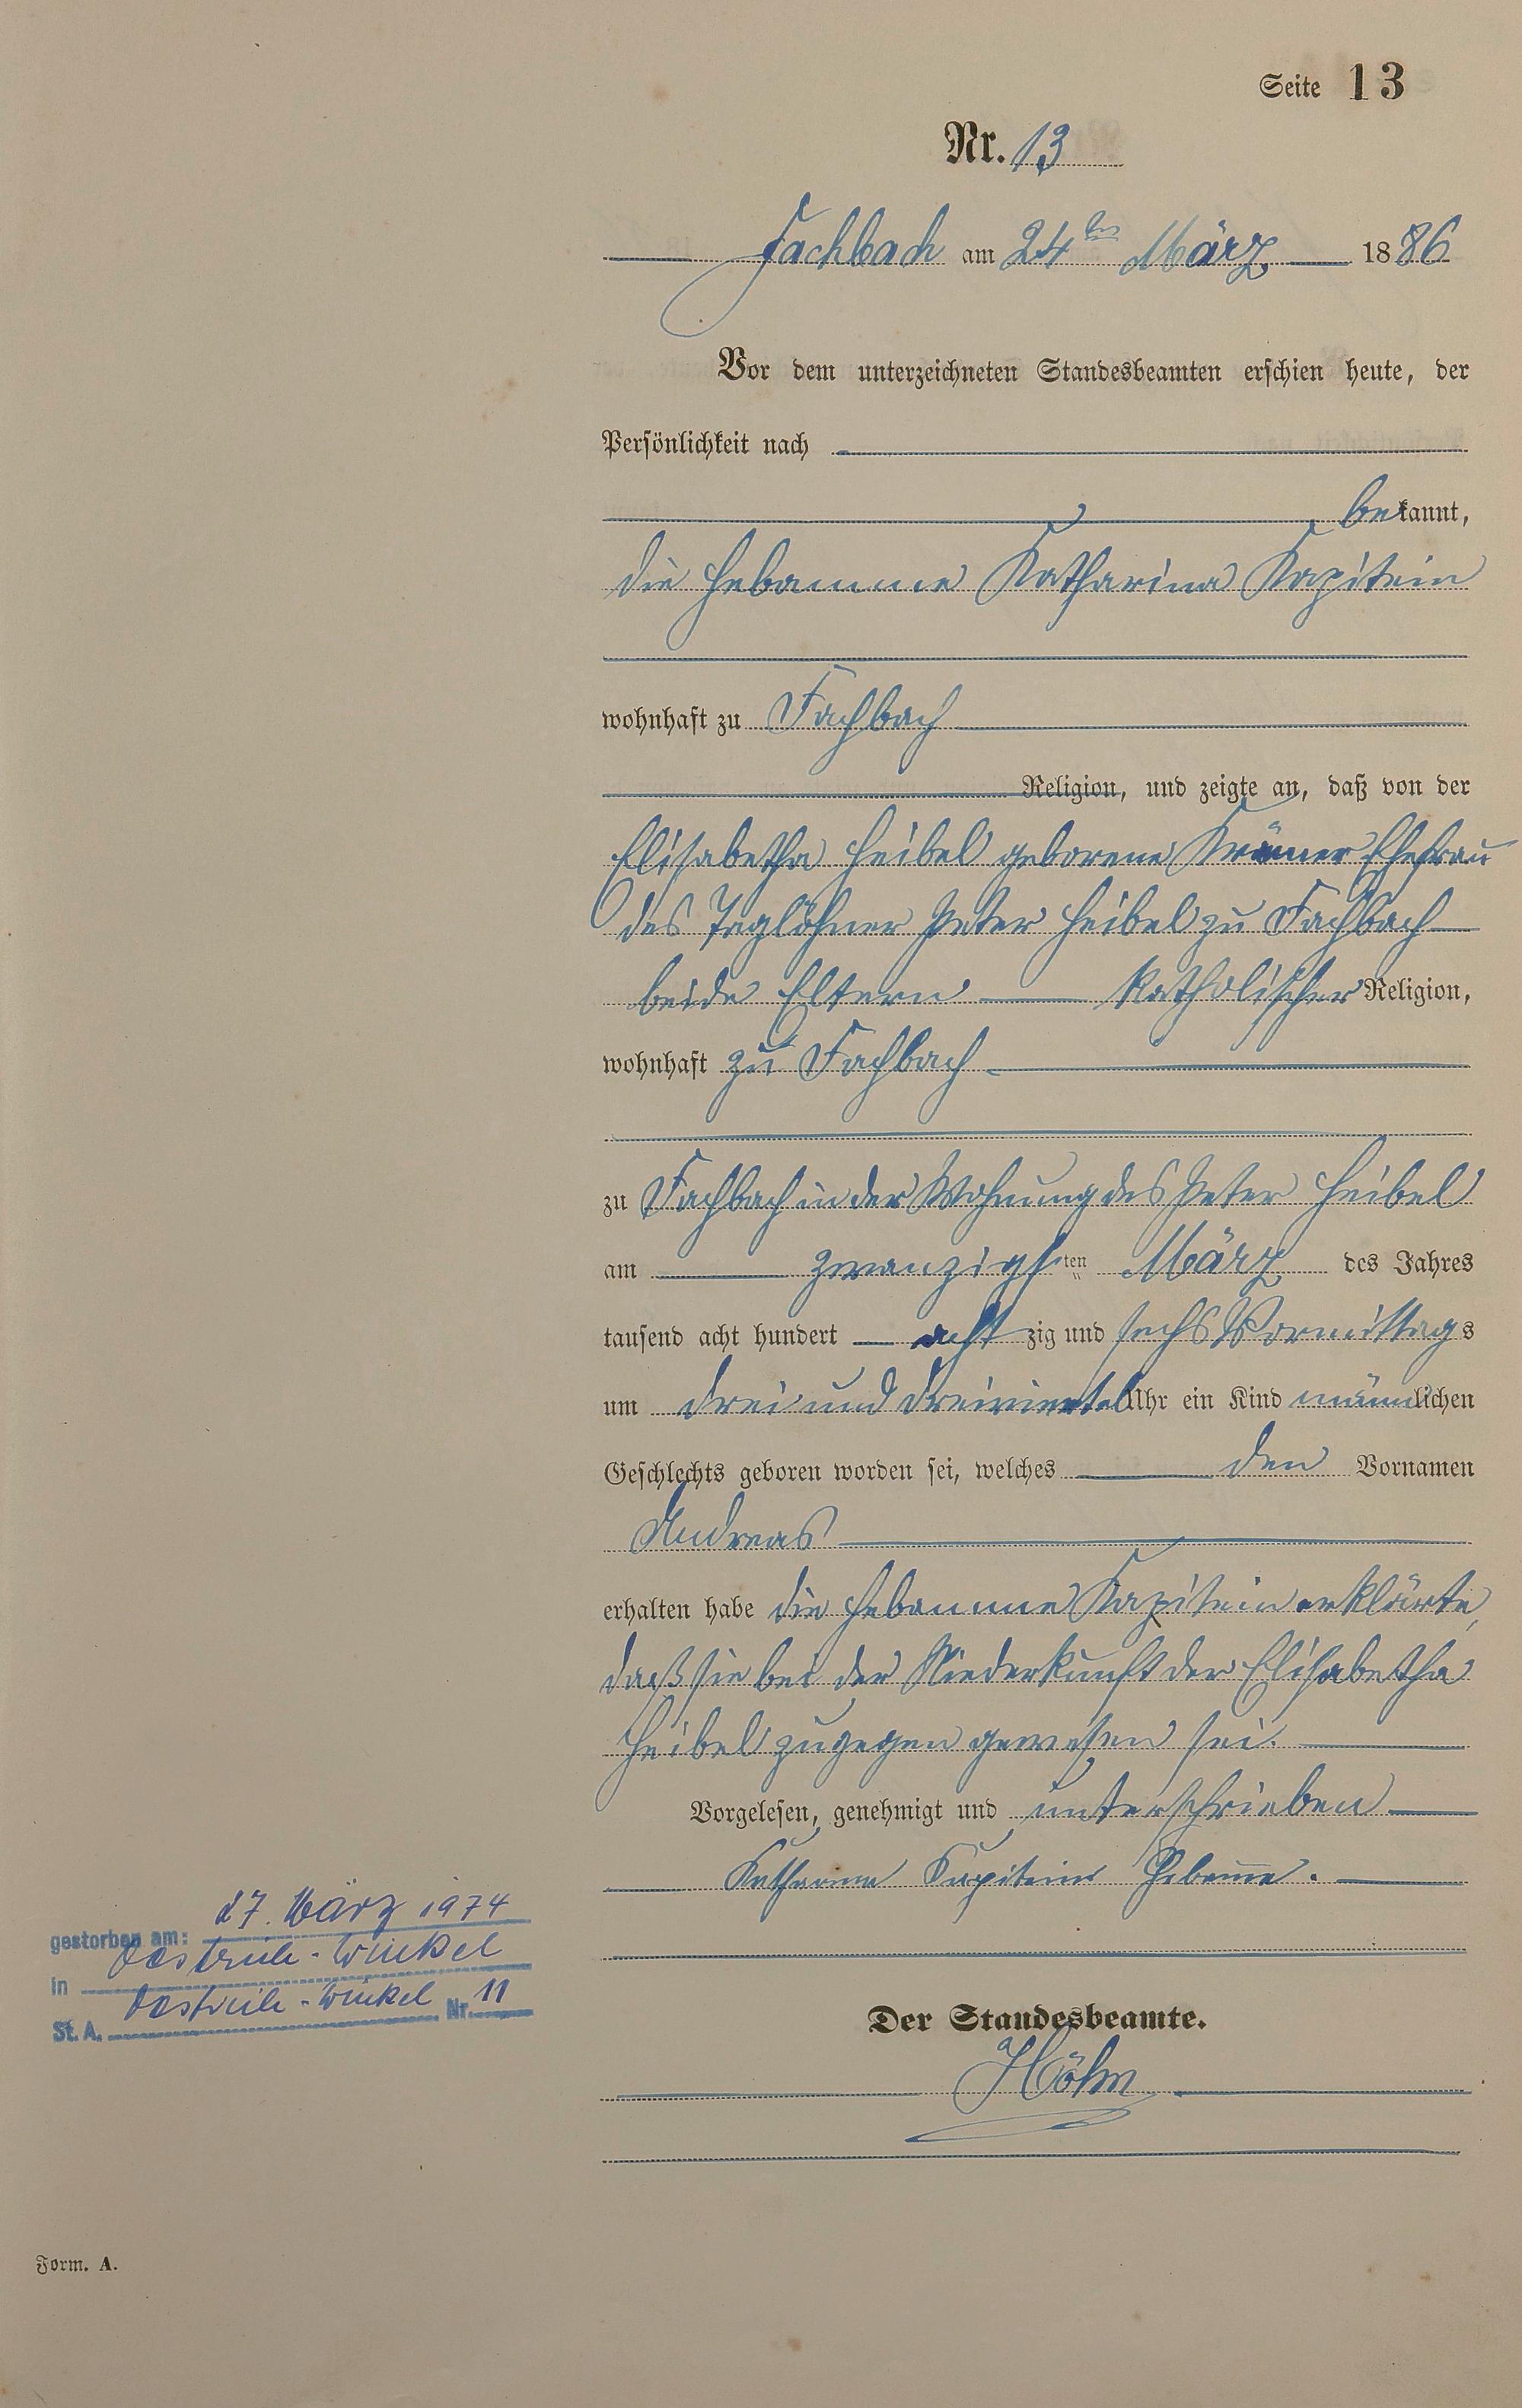 Seite 13
Nr. 13
Fachbach am 24ten März 1886
Vor dem unterzeichneten Standesbeamten erschien heute, der
Persönlichkeit nach
bekannt,
die Hebamme Katharina Kapitein
wohnhaft zu Fachbach
Religion, und zeigte an, daß von der
Elisabetha Heibel geborene Krämer Ehefrau
des Taglöhner Peter Heibel zu Fachbach
beide Eltern katholischer Religion,
wohnhaft zu Fachbach
zu Fachbach in der Wohnung des Peter Heibel
am zwanzigsten März des Jahres
tausend acht hundert achtzig und sechs Vormittags
um drei und dreiviertel Uhr ein Kind männlichen
Geschlechts geboren worden sei, welches den Vornamen
Andreas
erhalten habe die Hebamme Kapitein erklärte,
daß sie bei der Niederkunft der Elisabetha
Heibel zugegen gewesen sei.
Vorgelesen, genehmigt und unterschrieben
Katharina Kapitein Hebamme.
Der Standesbeamte.
Höhn
gestorben am: 27. März 1974
in Oestrich-Winkel
St. A. Oestrich-Winkel Nr. 11
Form. A.